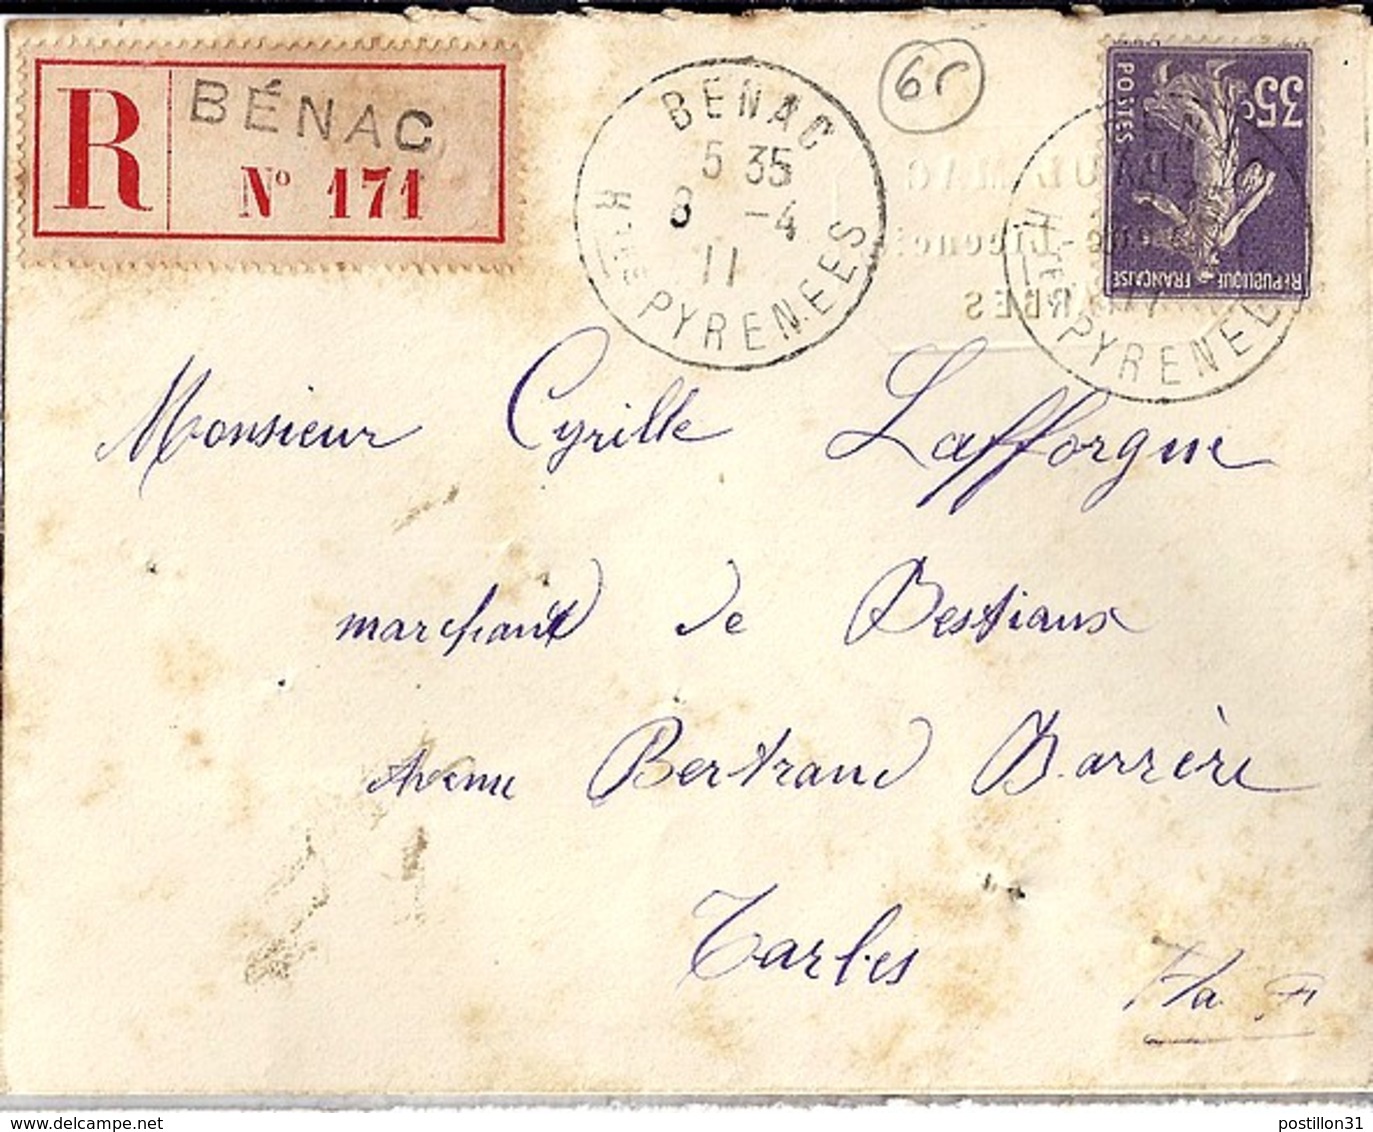 R BÉNAC
N° 171
BÉNAC
5 35
8 -4
11
HTES PYRENEES
6r
35c
POSTES
REPUBLIQUE FRANÇAISE
HTES PYRENEE
Monsieur Cyrille Lafforgue
marchand de Bestiaux
Avenue Bertrand Barrère
Tarbes
Hes P
postillon31